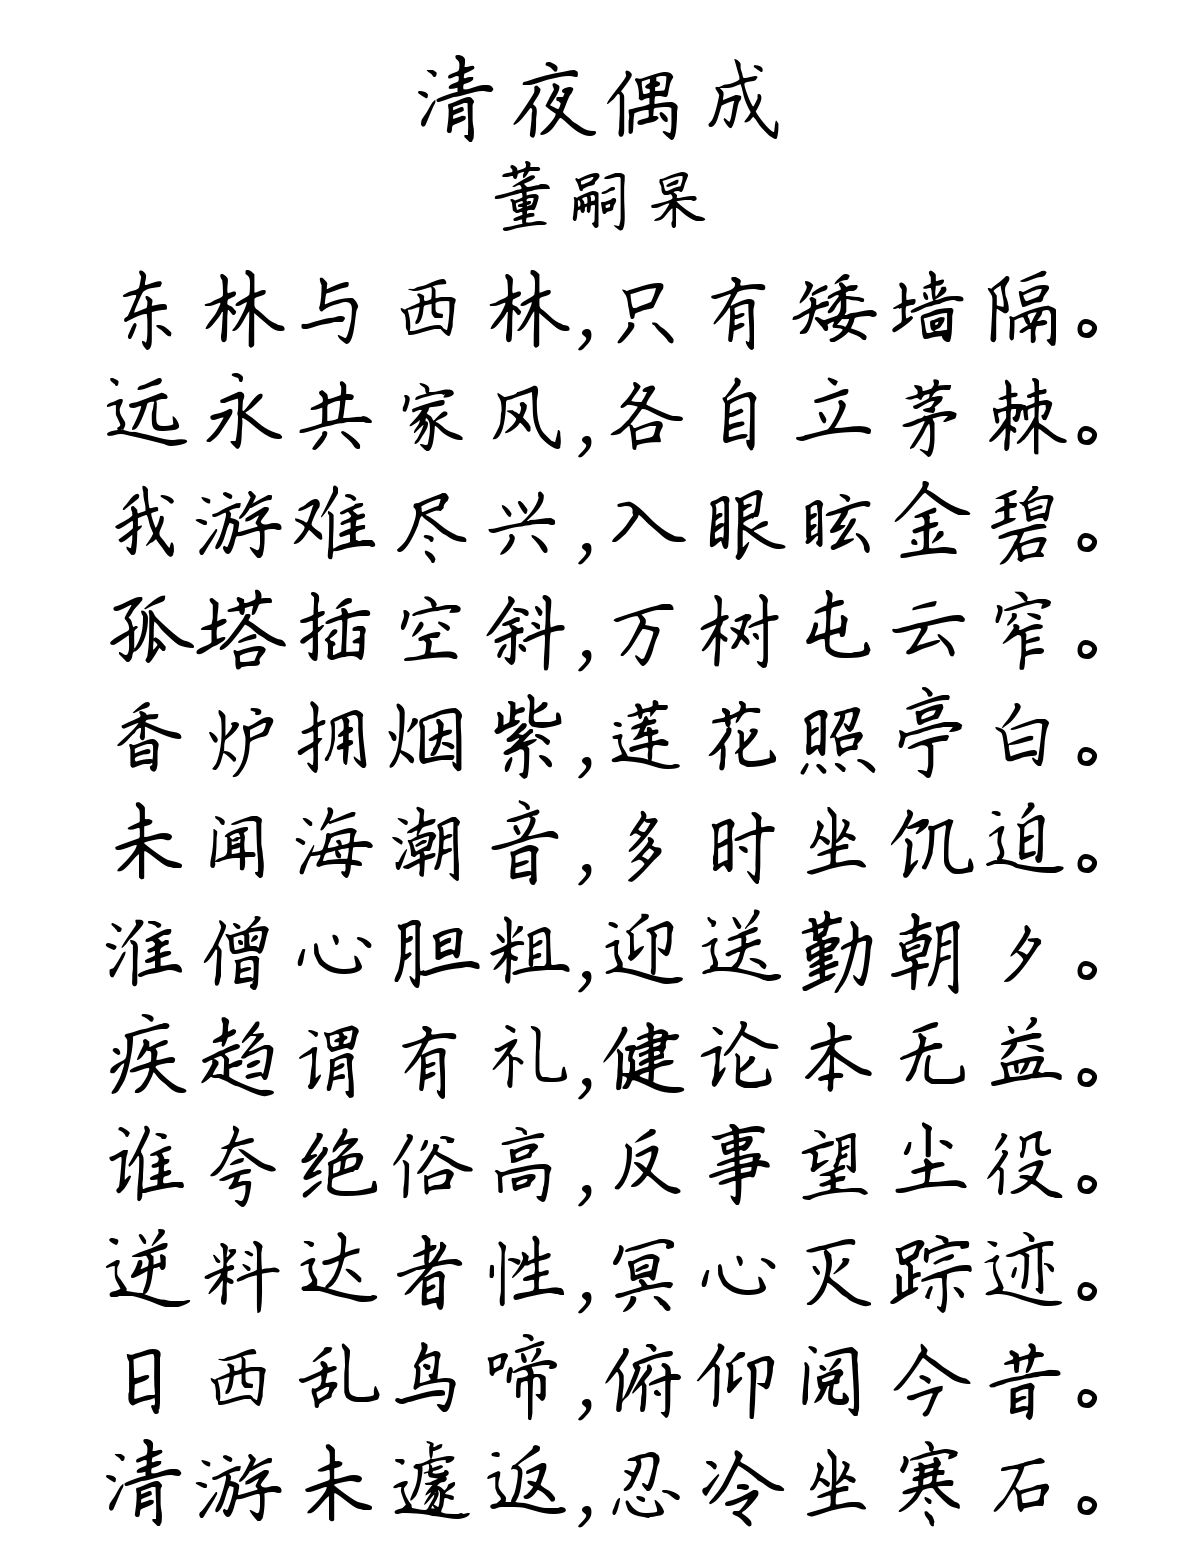 清夜偶成
董嗣杲
东林与西林,只有矮墙隔。
远永共家风,各自立茅棘。
我游难尽兴,入眼眩金碧。
孤塔插空斜,万树屯云窄。
香炉拥烟紫,莲花照亭白。
未闻海潮音,多时坐饥迫。
淮僧心胆粗,迎送勤朝夕。
疾趋谓有礼,健论本无益。
谁夸绝俗高,反事望尘役。
逆料达者性,冥心灭踪迹。
日西乱鸟啼,俯仰阅今昔。
清游未遽返,忍冷坐寒石。